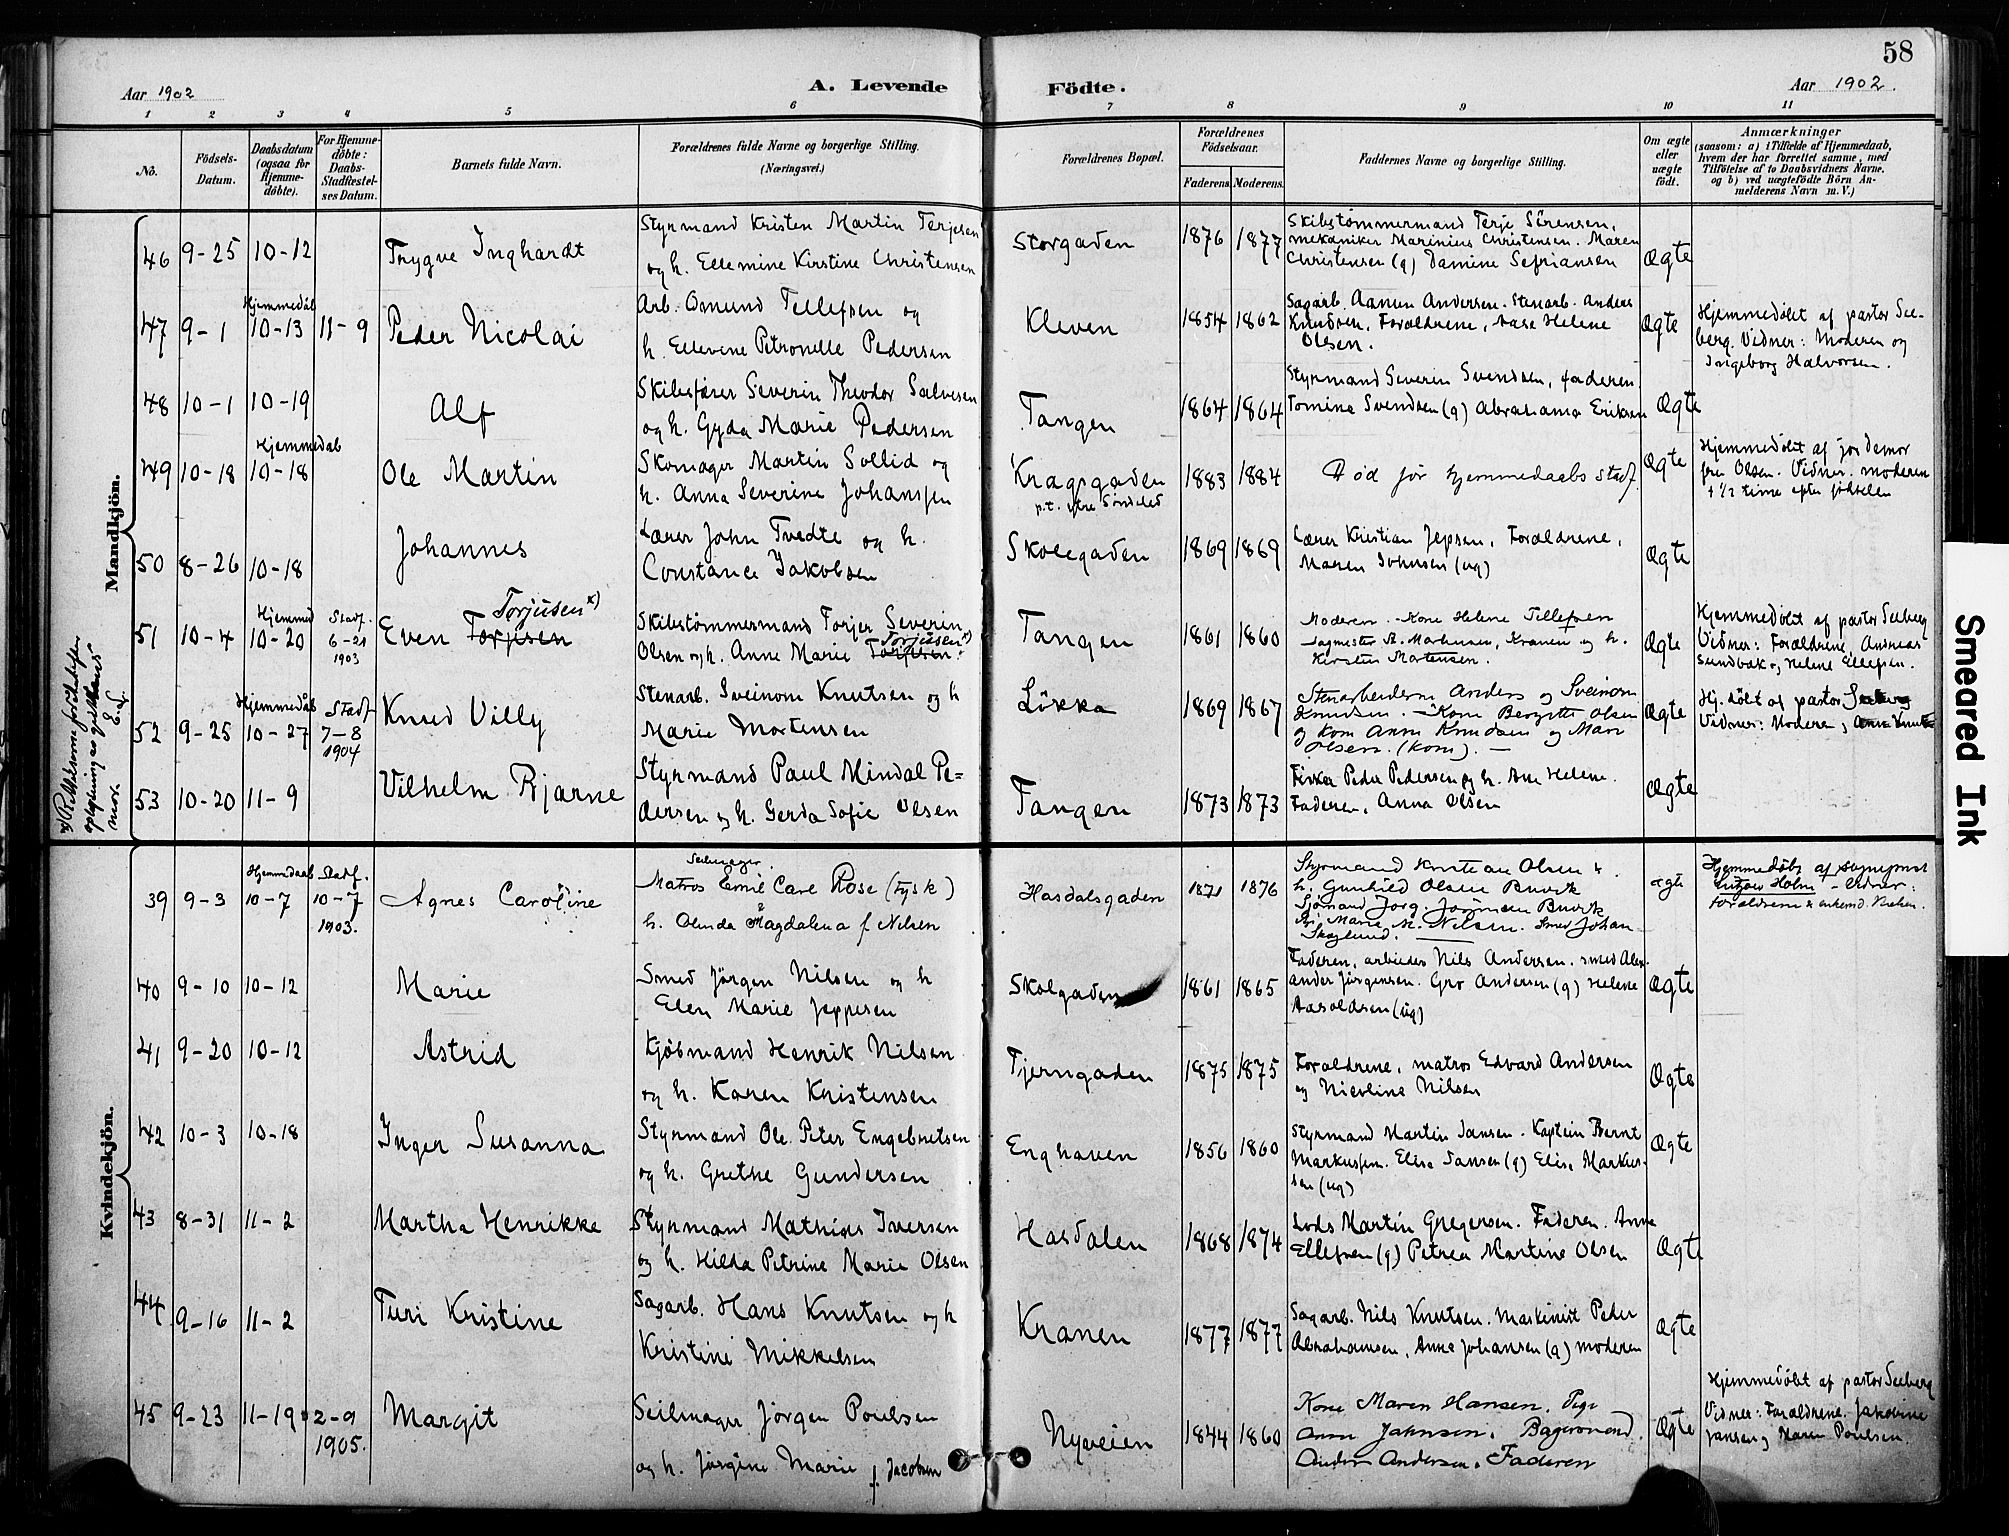 58
Aar 1902
A. Levende
Födte.
Aar 1902.
1 2 3 4 5 6 7 8 9 10 11
No.
Födsels-
Datum.
Daabsdatum
(ogsaa for
Hjemme-
döbte).
For Hjemme-
döbte:
Daabs-
Stadfæstel-
ses Datum.
Barnets fulde Navn.
Forældrenes fulde Navne og borgerlige Stilling.
(Næringsvei.)
Forældrenes Bopæl.
Forældrenes
Födselsaar.
Faderens. Moderens.
Faddernes Navne og borgerlige Stilling.
Om ægte
eller
uægte
födt.
Anmærkninger
(saasom: a) i Tilfælde af Hjemmedaab,
hvem der har forrettet samme, med
Tilföielse af to Daabsvidners Navne.
og b) ved uægtefödte Börn An-
melderens Navn m. V.)
Mandkjön.
46 9-25 10-12 Trygve Inghardt
Styrmand Kristen Martin Terjesen
og h. Ellemine Kirstine Christensen
Storgaden 1876 1877
Skibstømmermand Terje Sörensen,
mekaniker Marinius Christensen. Maren
Christensen (g) Damine Sefriansen
Ægte
47 9-1 Hjemmedåb 10-13 11-9 Peder Nicolai
Arb. Osmund Tellefsen og
h. Ellevine Petronelle Pedersen
Kleven 1854 1862
Sagarb. Aanun Andersen. Stenarb. Anders
Knudsen, Forældrene, Aase Helene
Olsen.
Ægte
Hjemmedöbt af pastor See-
berg. Vidner: Moderen og
Ingeborg Halvorsen.
48 10-1 10-19 Alf
Skibsfører Severin Theodor Salvesen
og h. Gyda Marie Pedersen
Tangen 1864 1864
Styrmand Severin Svendsen, faderen.
Tomine Svendsen (g) Abrahama Eriksen
Ægte
49 10-18 Hjemmedab 10-18 Ole Martin
Skomager Martin Sollid og
h. Anna Severine Johanssen
Kragsgaden
p.t. ytre Söndeled
1883 1884
Död før hjemmedaabs stadf.
Ægte
Hjemmedöbt af jordemor
fru Olsen. Vidner. moderen
† 1/2 time efter födselen
50 8-26 10-18 Johannes
Lærer John Tvedte og h.
Constance Jakobsen
Skolegaden 1869 1869
Lærer Kristian Jepsen, Forældrene,
Maren Johnsen (ug)
Ægte
51 10-4 Hjemmed 10-20 Stadf. 6-21 1903
Even Torjisen Torjusen x)
Skibstømmermand Torjer Severin
Olsen og h. Anne Marie Torjisen Torjusen x)
Tangen 1861 1860
Moderen. Kone Helene Tellefsen
Sagmester A. Mortensen, Kranen og h.
Kirsten Mortensen.
Ægte
Hjemmedöbt af pastor Seeberg
Vidner: Forældrene, Andreas
Sundbak og Helene Ellefsen.
52 9-25 Hjemmedåb 10-27 Stadf 7-8 1904 Knud Villy
Stenarb. Sveinom Knutsen og h
Marie Mortensen
Lökka 1869 1867
Stenarbeiderne Anders og Sveinom
Knudsen. - Kone Bergitte Olsen
og kone Anne Knudsen og Mari
Olsen. (kone). -
Ægte
Hj. döbt af pastor Seeberg
Vidner: Modere, Anne Knuts
53 10-20 11-9 Vilhelm Bjarne
Styrmand Paul Mindal Pe=
dersen og h. Gerda Sofie Olsen
Tangen 1873 1873
Fisker Peder Pedersen og h. Ane Helene.
Faderen, Anna Olsen
Ægte
Kvindekjön.
39 9-3 Hjemmedaab 10-7 Stadf. 10-7 1903. Agnes Caroline
Seilmager.
Matros Emil Carl Rose (tysk)
h. Olinda Magdalena f. Nilsen
Hasdalsgaden 1871 1876
Styrmand Kristian Olsen &
h. Gunhild Olsen Buvik
Sjømand Jörg. Jörgensen Buvik
Marie M. Nilsen. Smed Johan
Skoglund.
ægte
Hjemmedöbt af sogneprest
Lützow Holm - Vidner:
forældrene & enkemd. Nielsen.
40 9-10 10-12 Marie
Smed Jörgen Nilsen og h
Elen Marie Jeppesen
Skolgaden 1861 1865
Faderen, arbieder Nils Andersen. smed Alex-
ander Jörgensen. Gro Andersen (g) Helene
Aaroldsen (ug)
Ægte
41 9-20 10-12 Astrid
Kjöbmand Henrik Nilsen
og h. Karen Kristensen
Tjerngaden 1875 1875
Forældrene, matros Edvard Andersen
og Nicoline Nilsen
Ægte
42 10-3 10-18 Inger Susanna
Styrmand Ole Peter Engebretsen
og h. Grethe Gundersen
Enghaven 1856 1860
Styrmand Martin Jansen. Kaptein Bernt
Markussen. Elise Jansen (g) Elise Markus-
sen (ug)
Ægte
43 8-31 11-2 Martha Henrikke
Styrmand Mathias Iversen
og h. Hilda Petrine Marie Olsen
Hasdalen 1868 1874
Lods Martin Gregersen. Faderen. Anne
Ellefsen (g) Petrea Martine Olsen
Ægte
44 9-16 11-2 Turi Kristine
Sagarb. Hans Knutsen og h
Kristine Mikkelsen
Kranen 1877 1877
Sagarb. Nils Knutsen. Maskinist Peder
Abrahamsen, Anna Johansen (g) moderen
Ægte
45 9-23 11-19 2-9 1905. Margit
Seilmager Jörgen Poulsen
og h. Jörgine Marie f. Jacobsen
Nyveien 1844 1860
Kone Maren Hansen. Pige
Anne Jahnsen. Bagersvend
Anders Andersen. Faderen
Ægte
Hjemmedöbt af pastor Seeberg
Vidner: Forældrene. Jakobine
Jansen og Maren Poulsen.
Smeared Ink